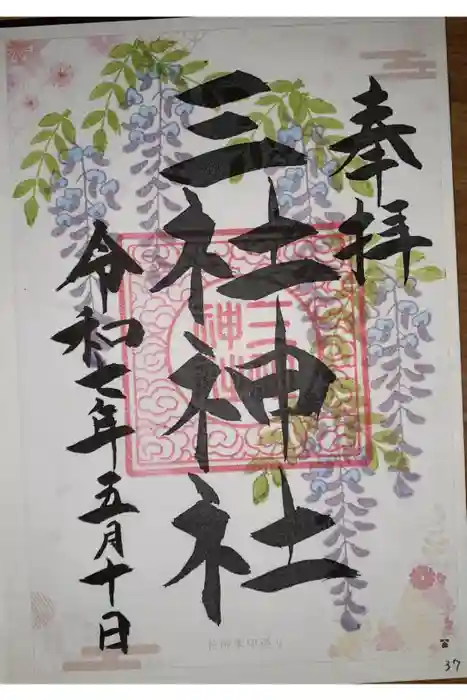 奉拝
三社神社
三社
神社
令和七年五月十日
37